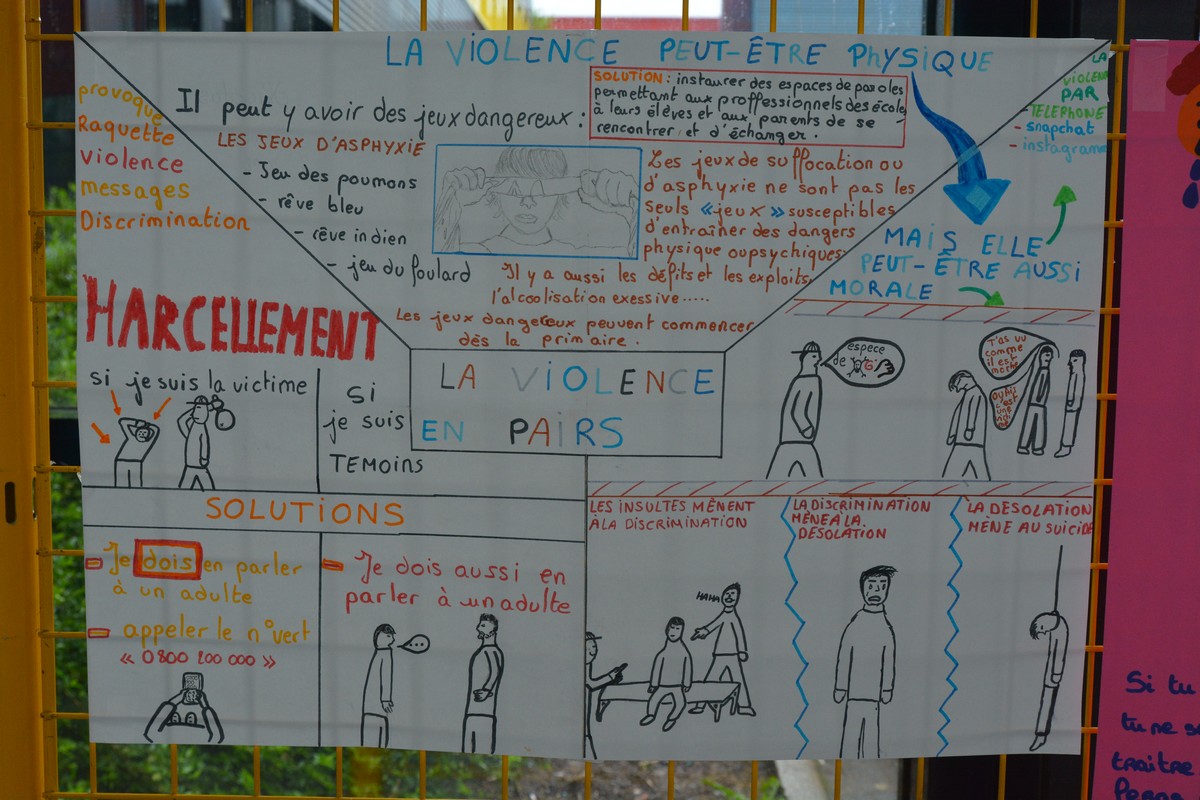 LA VIOLENCE PEUT-ÊTRE PHYSIQUE
Il peut y avoir des jeux dangereux :
SOLUTION : instaurer des espaces de paroles
permettant aux proffessionnels des école
à leurs élèves et aux parents de se
rencontrer et d'échanger.
LES JEUX D'ASPHYXIE
- Jeu des poumons
- rêve bleu
- rêve indien
- jeu du foulard
Les jeux de suffocation ou
d'asphyxie ne sont pas les
seuls «jeux» susceptibles
d'entraîner des dangers
physique ou psychiques.
Il y a aussi les défits et les exploits,
l'alcoolisation exessive.....
Les jeux dangereux peuvent commencer
dès la primaire.
provoque
Raquette
violence
messages
Discrimination
HARCELLEMENT
si je suis la victime
SI
je suis
TEMOINS
SOLUTIONS
- Je dois en parler
à un adulte
- appeler le n°vert
« 0800 200 000 »
- Je dois aussi en
parler à un adulte
...
LA VIOLENCE
EN PAIRS
LA
VIOLEN
PAR
TELEPHONE
- snapchat
- instagrame
MAIS ELLE
PEUT-ÊTRE AUSSI
MORALE
espece
de
T'as vu
comme
il est
moche
LES INSULTES MÈNENT
À LA DISCRIMINATION
HAHA
LA DISCRIMINATION
MÈNE À LA
DÉSOLATION
LA DÉSOLATION
MÈNE AU SUICIDE
Si tu
tu ne
traître